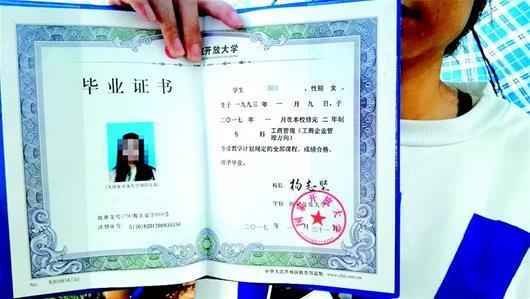 开放大学
毕业证书
学生
，性别 女，
生于 一九九三年 一 月 九 日，于
二〇一七年 一 月在本校修完 二 年制
专 科 工商管理（工商企业管理方向）
专业教学计划规定的全部课程，成绩合格，
准予毕业。
校长：
学校：国家开放大学
二〇一七年 一 月 三十一
批准文号：(79)教工农字089号
注册证号：
No.
中华人民共和国教育部监制